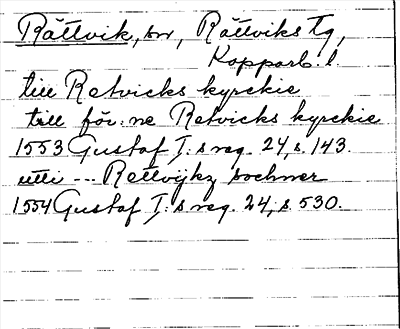 Rättvik, sn, Rättviks tg,
Kopparb. l.
till Retvicks kyrckie
till för:ne Retvicks kyrckie
1553 Gustaf I:s reg. 24, s. 143.
utti --- Rettvijkz sochner
1554 Gustaf I:s reg. 24, s 530.